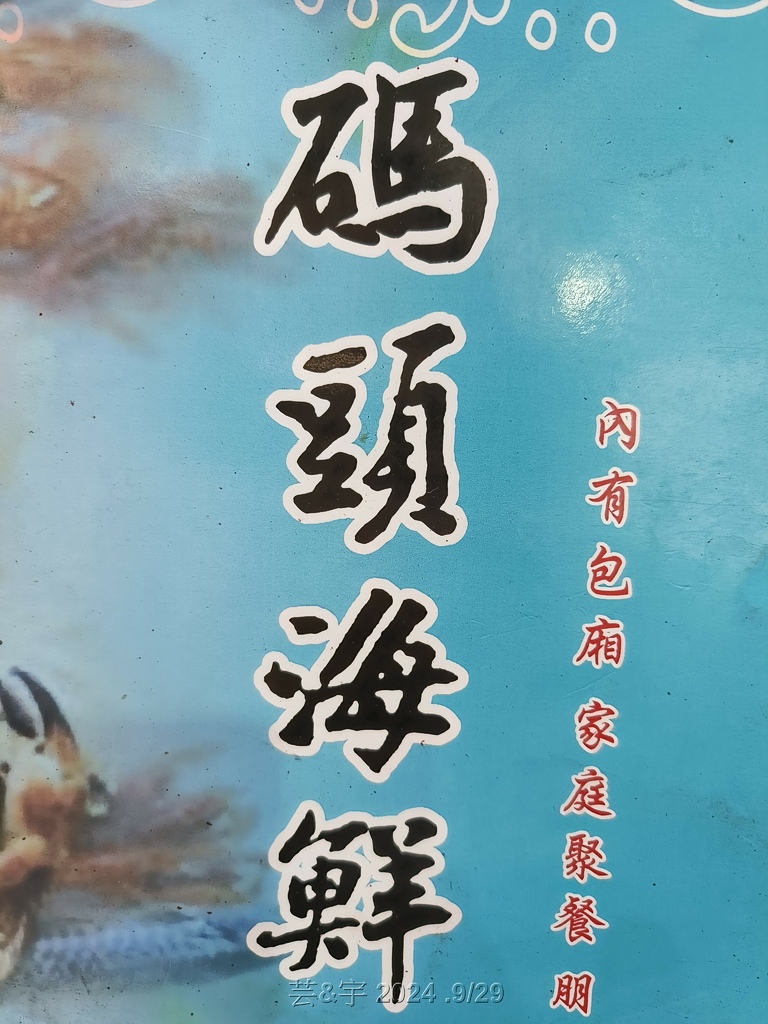 碼頭海鮮
內有包廂 家庭聚餐 朋
芸&宇 2024 .9/29